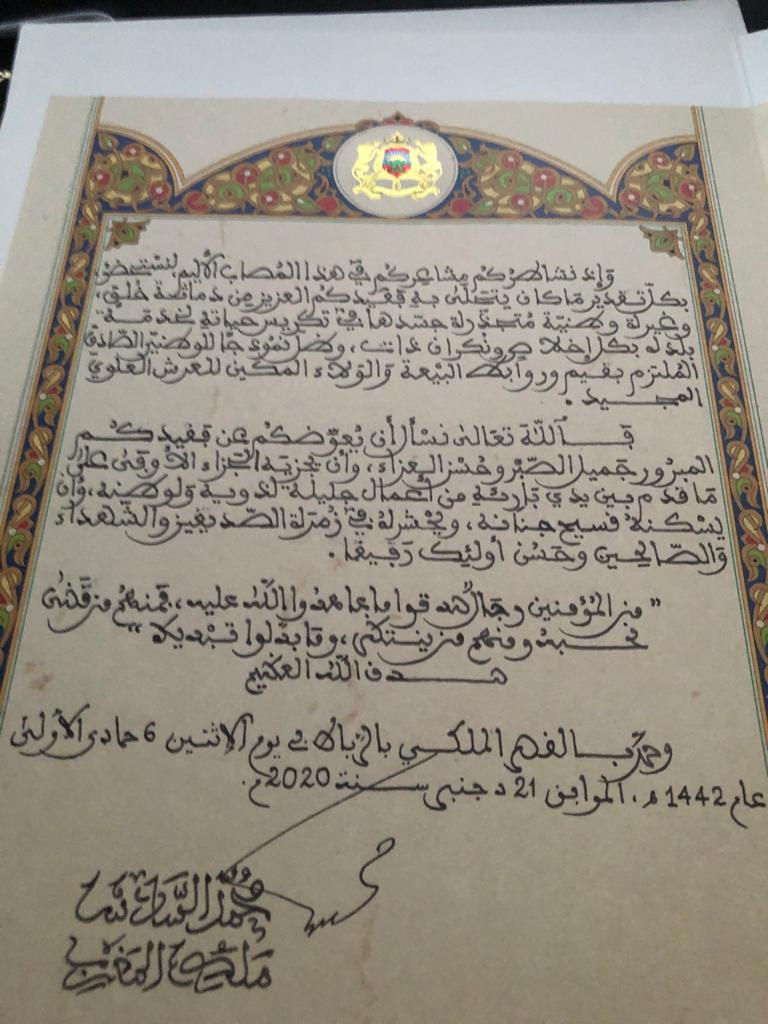 وإذ نشاطركم مشاعركم في هذا المصاب الأليم، لنستحضر،
بكلّ تقدير ما كان يتحلّى به فقيدكم العزيز من دماثة خلق،
وغيرة وطنيّة متجذّرة جسّدها في تكريس حياته لخدمة
بلده بكل إخلاص ونكران ذات، وظلّ نموذجا للوطنيّ الصّادق
المُلتزم بقيم وروابط البيعة والولاء المكين للعرش العلويّ
المجيد.
فاللّه تعالى نسأل أن يُعوّضكم عن فقيدكم
المبرور جميل الصّبر وحسن العزاء، وأن يجزيه الجزاء الأوفى على
ما قدّم بين يدي بارئه من أعمال جليلة لذويه ولوطنه، وأن
يسكنه فسيح جنانه، ويحشره في زُمرة الصّدّيقين والشّهداء
والصّالحين وحَسُن أولئك رَفيقا.
"من المُؤمنين رجال صدقوا ما عاهدوا اللّه عليه، فمنهم من قضى
نحبه ومنهم من ينتظر، وما بدّلوا تبديلا"
صدق اللّه العظيم
وحرّر بالقصر الملكي بالرّباط في يوم الإثنين 6 جمادى الأولى
عام 1442 ه، الموافق 21 دجنبر سنة 2020م.
محمد السادس
ملك المغرب